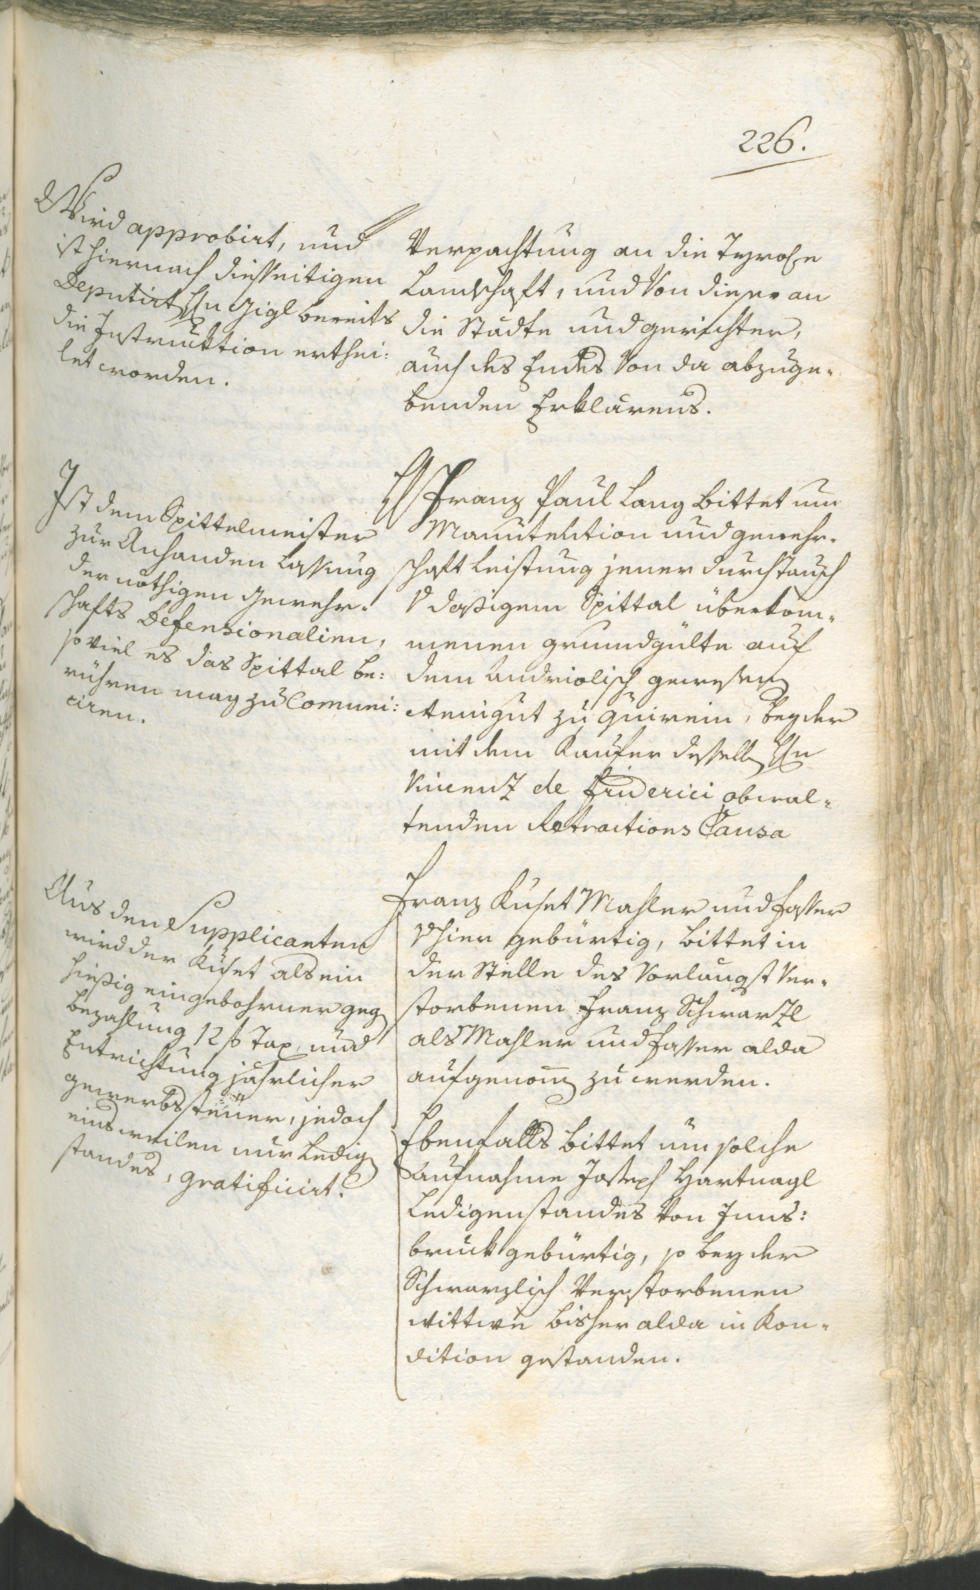 226.
Wird approbirt, und
ist hiernach diesseitigen
Deputirt Hn Gigl bereits
die Instruktion erthei:
let worden.
Verpachtung an die Tyrolse
Landschaft, und von dieser an
die Städte und gerichter,
auch des Endes von da abzuge-
benden Erklärens.
Ist dem Spittelmeister
zur Anhanden Lassung
der nöthigen gewehr-
schafts Defensionalien,
so viel es das Spittal be:
rühren mag zu Comuni:
ciren.
Franz Paul Lang bittet um
Manutention und gewehr-
schaft Leistung jener durch Tausch
v dasigem Spittal überkom-
menen grundgülte auf
dem Andriolisch gewesen
Arnigut zu Quirein, bey der
mit dem Kaufer desselb Hn
Vincenz de Friderici obwal-
tenden Retractions Causa
Aus den Supplicanten
wird der Kuset als ein
hiesig eingebohrner geg
Bezahlung 12 f Tax, und
Entrichtung jährlicher
gewerbssteüer, jedoch
einsweilen nur Ledig
standes, gratificirt.
Franz Kuset Mahler und Fasser
v hier gebürtig, bittet in
der Stelle des vorlängst ver-
storbenen Franz Schwarzl
als Mahler und Fasser alda
aufgenom̄ zu werden.
Ebenfalls bittet um solche
Aufnahme Joseph Hartnagl
Ledigenstandes von Inns:
bruck gebürtig, so bey der
Schwarzlisch verstorbenen
Wittwe bisher alda in Kon-
dition gestanden.